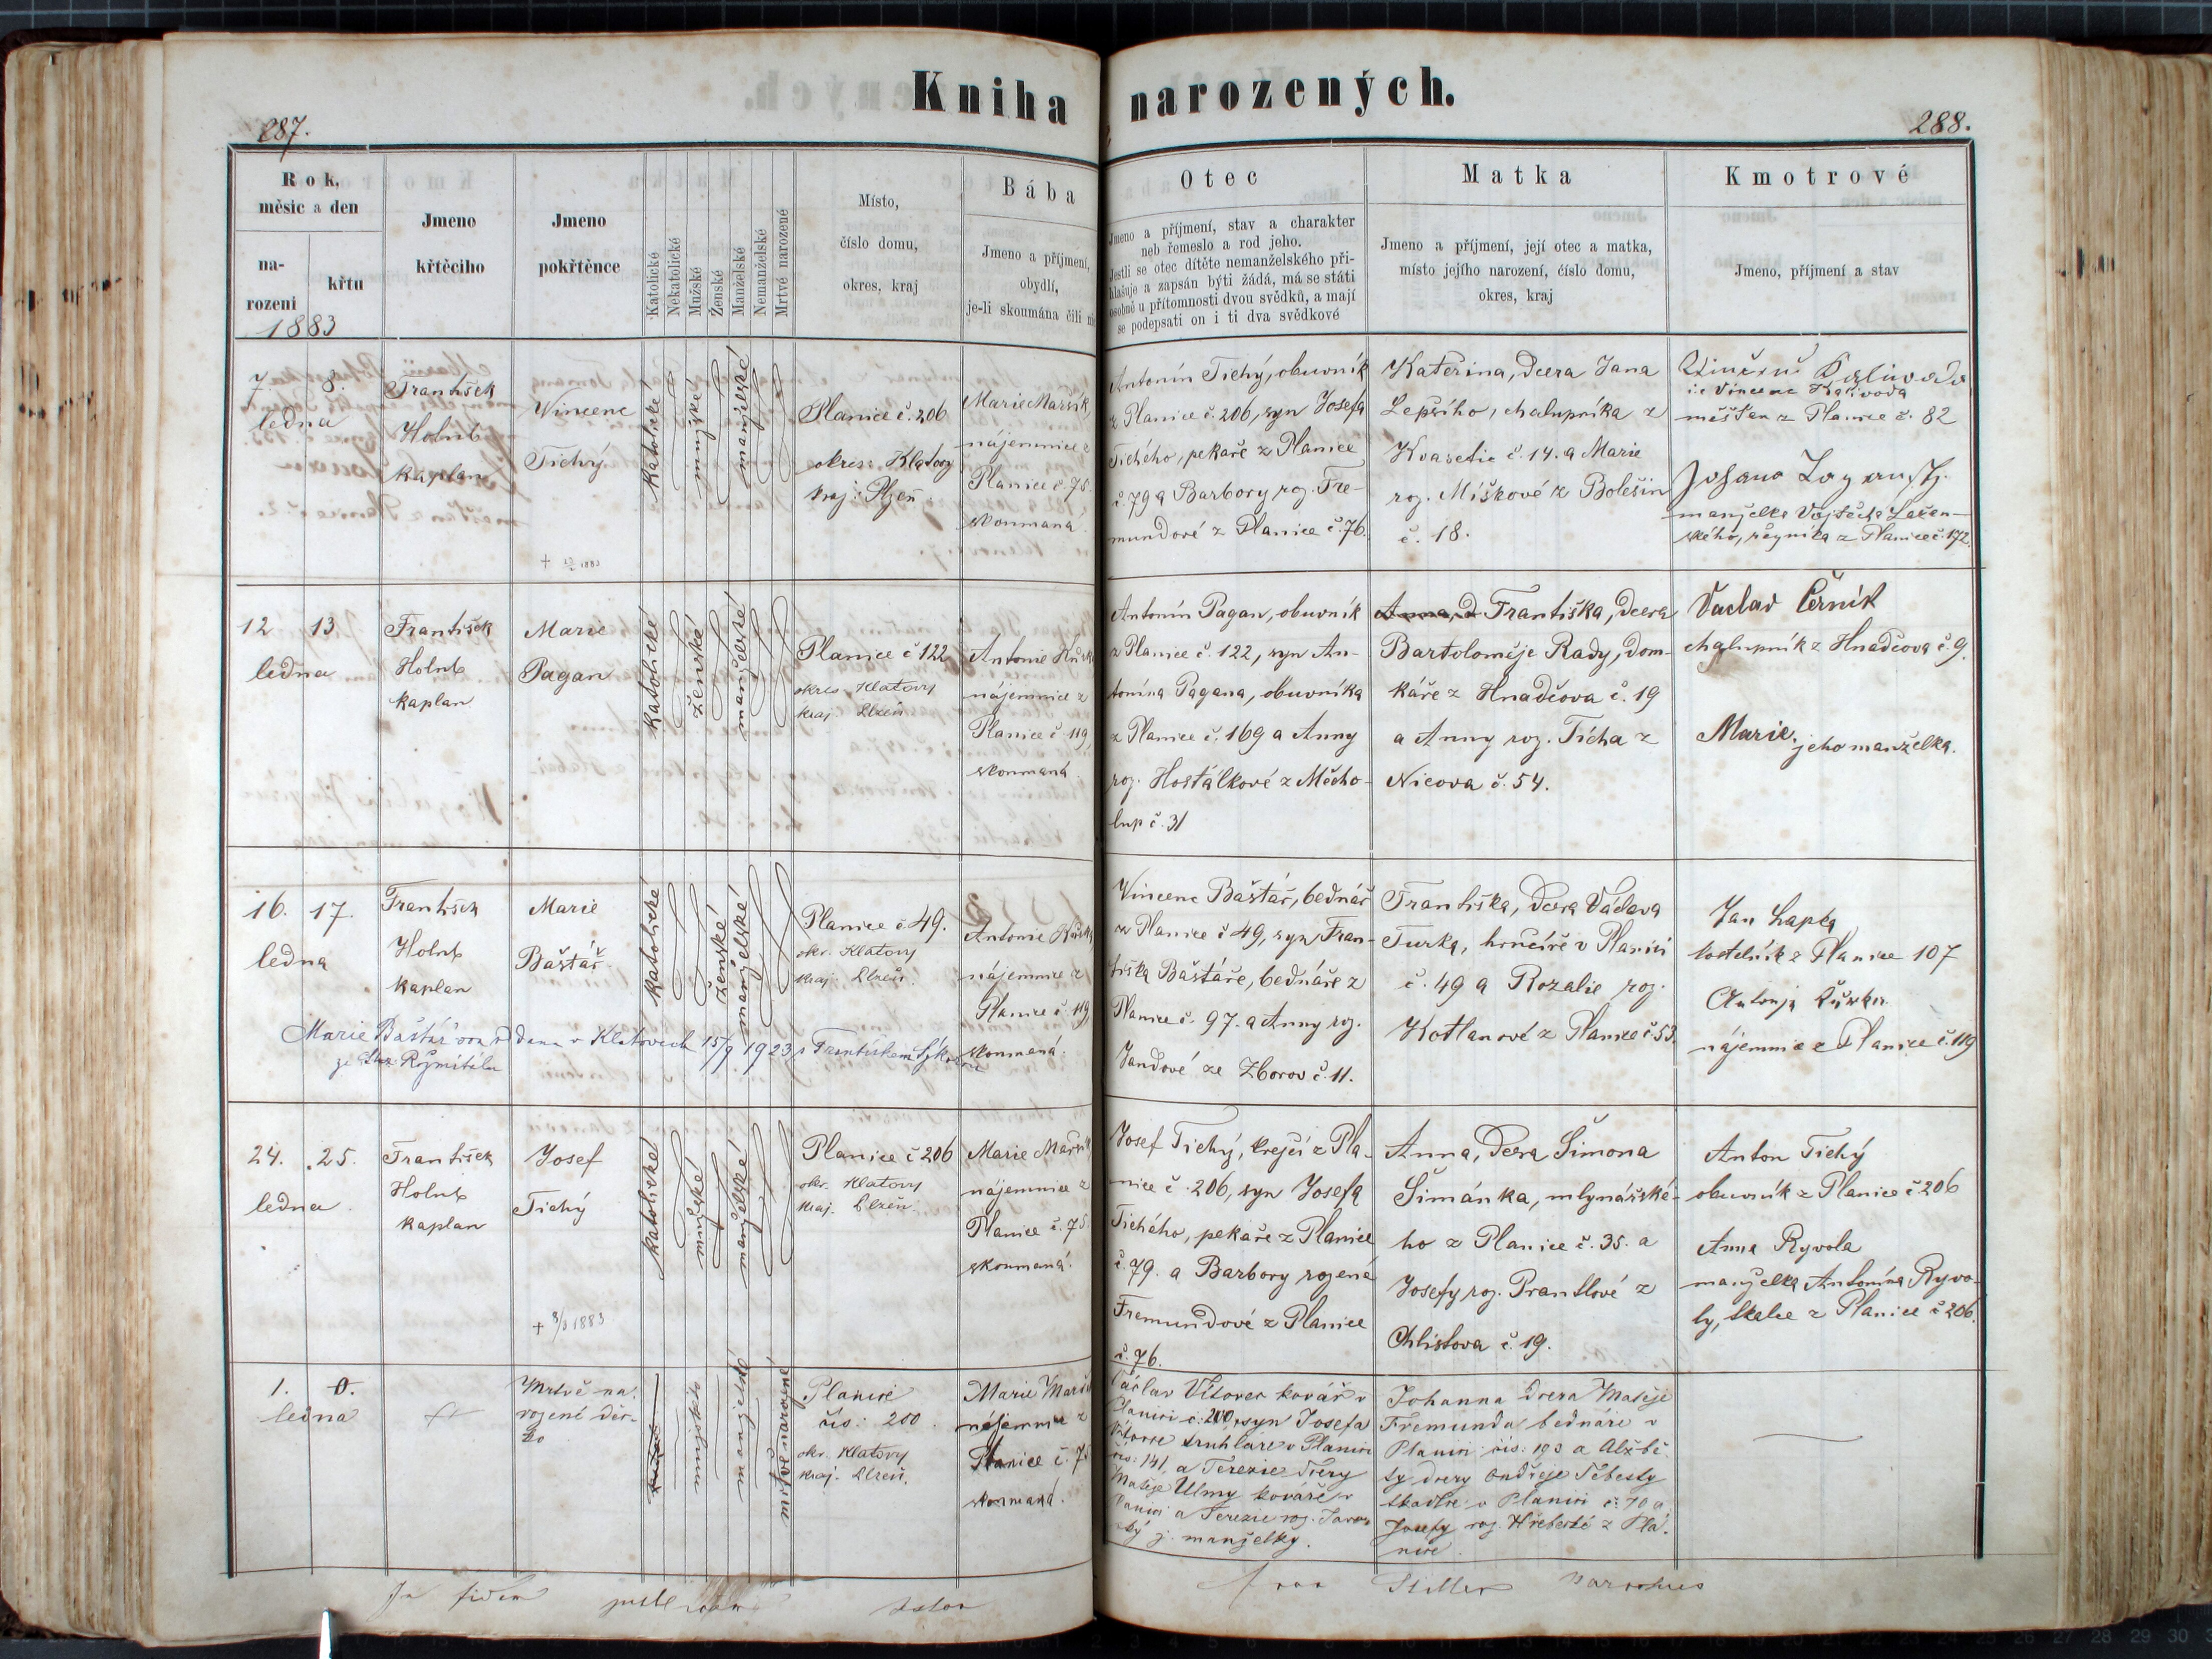 Kniha narozených.
287.
288.
Rok, měsíc a den
narození
křtu
Jmeno křtěcího
Jmeno pokřtěnce
Katolické
Nekatolické
Mužské
Ženské
Manželské
Nemanželské
Mrtvě narozené
Místo,
číslo domu,
okres, kraj
Bába
Jmeno a příjmení,
obydlí,
je-li skoumána čili
Otec
Jmeno a příjmení, stav a charakter
neb řemeslo a rod jeho.
Jestli se otec dítěte nemanželského při-
hlašuje a zapsán býti žádá, má se státi
osobně u přítomnosti dvou svědků, a mají
se podepsati on i ti dva svědkové
Matka
Jmeno a příjmení, její otec a matka,
místo jejího narození, číslo domu,
okres, kraj
Kmotrové
Jmeno, příjmení a stav
1883
7. 8.
ledna
František
Holub
kaplan
Vincenc
Tichý
+ 1883
katolické
mužské
manželské
Planice č. 206
okres: Klatovy
kraj: Plzeň
Marie Maršík
nájemnice z
Planice č. 75.
skoumaná
Antonín Tichý, obuvník
z Planice č. 206, syn Josefa
Tichého, pekaře z Planice
č. 79 a Barbory roz. Fre-
mundové z Planice č. 76.
Kateřina, dcera Jana
Lepšího, chalupníka z
Kvasetic č. 14. a Marie
roz. Míškové z Bolešin
č. 18.
i.e. Vincenc Kalivoda
měšťan z Planice č. 82
manželka Vojtěcha
řezníka z Planice č. 172.
12 13
ledna
František
Holub
kaplan
Marie
Pagan
katolické
ženské
manželské
Planice č 122
okres Klatovy
kraj. Plzeň
Antonie
nájemnice z
Planice č 119,
skoumaná.
Antonín Pagan, obuvník
z Planice č. 122, syn An-
tonína Pagana, obuvníka
z Planice č. 169 a Anny
roz. Hošťálkové z Měcho-
lup č. 31
Anna, d Františka, dcera
Bartoloměje Rady, dom-
káře z Hnačova č. 19
a Anny roz. Tichá z
Nicova č. 54.
Václav Černík
chalupník z Hnačova č. 9.
Marie,
jeho manželka.
16. 17.
ledna
František
Holub
kaplan
Marie
Baštář
katolické
ženské
manželské
Planice č 49.
okr. Klatovy
kraj. Plzeň.
Antonie
nájemnice z
Planice č. 119
skoumaná.
Vincenc Baštář, bednář
z Planice č 49, syn Fran-
tiška Baštáře, bednáře z
Planice č. 97. a Anny roz.
Jandové ze Zborov č. 11.
Františka, dcera Václava
Turka, hrnčíře v Planici
č. 49 a Rozalie roz.
Kotlanové z Planice č 53.
Jan Lapka
kostelník z Planice 107
nájemnice z Planice č. 119
Marie Baštářova v Klatovech 15/9 1923 s Františkem
24. 25.
ledna.
František
Holub
kaplan
Josef
Tichý
+ 3/3 1883
katolické
mužské
manželské
Planice č 206
okr. Klatovy
kraj. Plzeň.
Marie Maršík
nájemnice z
Planice č. 75
skoumaná.
Josef Tichý, krejčí z Pla-
nice č. 206, syn Josefa
Tichého, pekaře z Planice
č. 79. a Barbory rozené
Fremundové z Planice
č. 76.
Anna, dcera Šimona
Šimánka, mlynářské-
ho z Planice č. 35. a
Josefy roz. Prantlové z
Chlistova č. 19.
Anton Tichý
obuvník z Planice č 206
Anna Ryvola
manželka Antonína Ryvo-
ly, tkalce z Planice č 206.
1. 0.
ledna
Mrtvě na-
rozené děc-
ko
mužské
manželské
mrtvě narozené
Planice
čís: 200.
okr. Klatovy
kraj. Plzeň.
Marie
nájemnice z
Planice č. 75
skoumaná.
Václav Vítovec kovář v
Planici č: 200, syn Josefa
Vítovce truhláře v Planici
čís: 141, a Terezie dcery
Matěje Ulmy kováře v
Planici a Terezie roz.
j. manželky.
Johanna dcera Matěje
Fremunda bednáře v
Planici čís: 193 a Alžbě-
ty dcery Ondřeje Šebesty
tkadlce v Planici č: 70 a
Josefy roz. z Plá-
nice.
In fidem